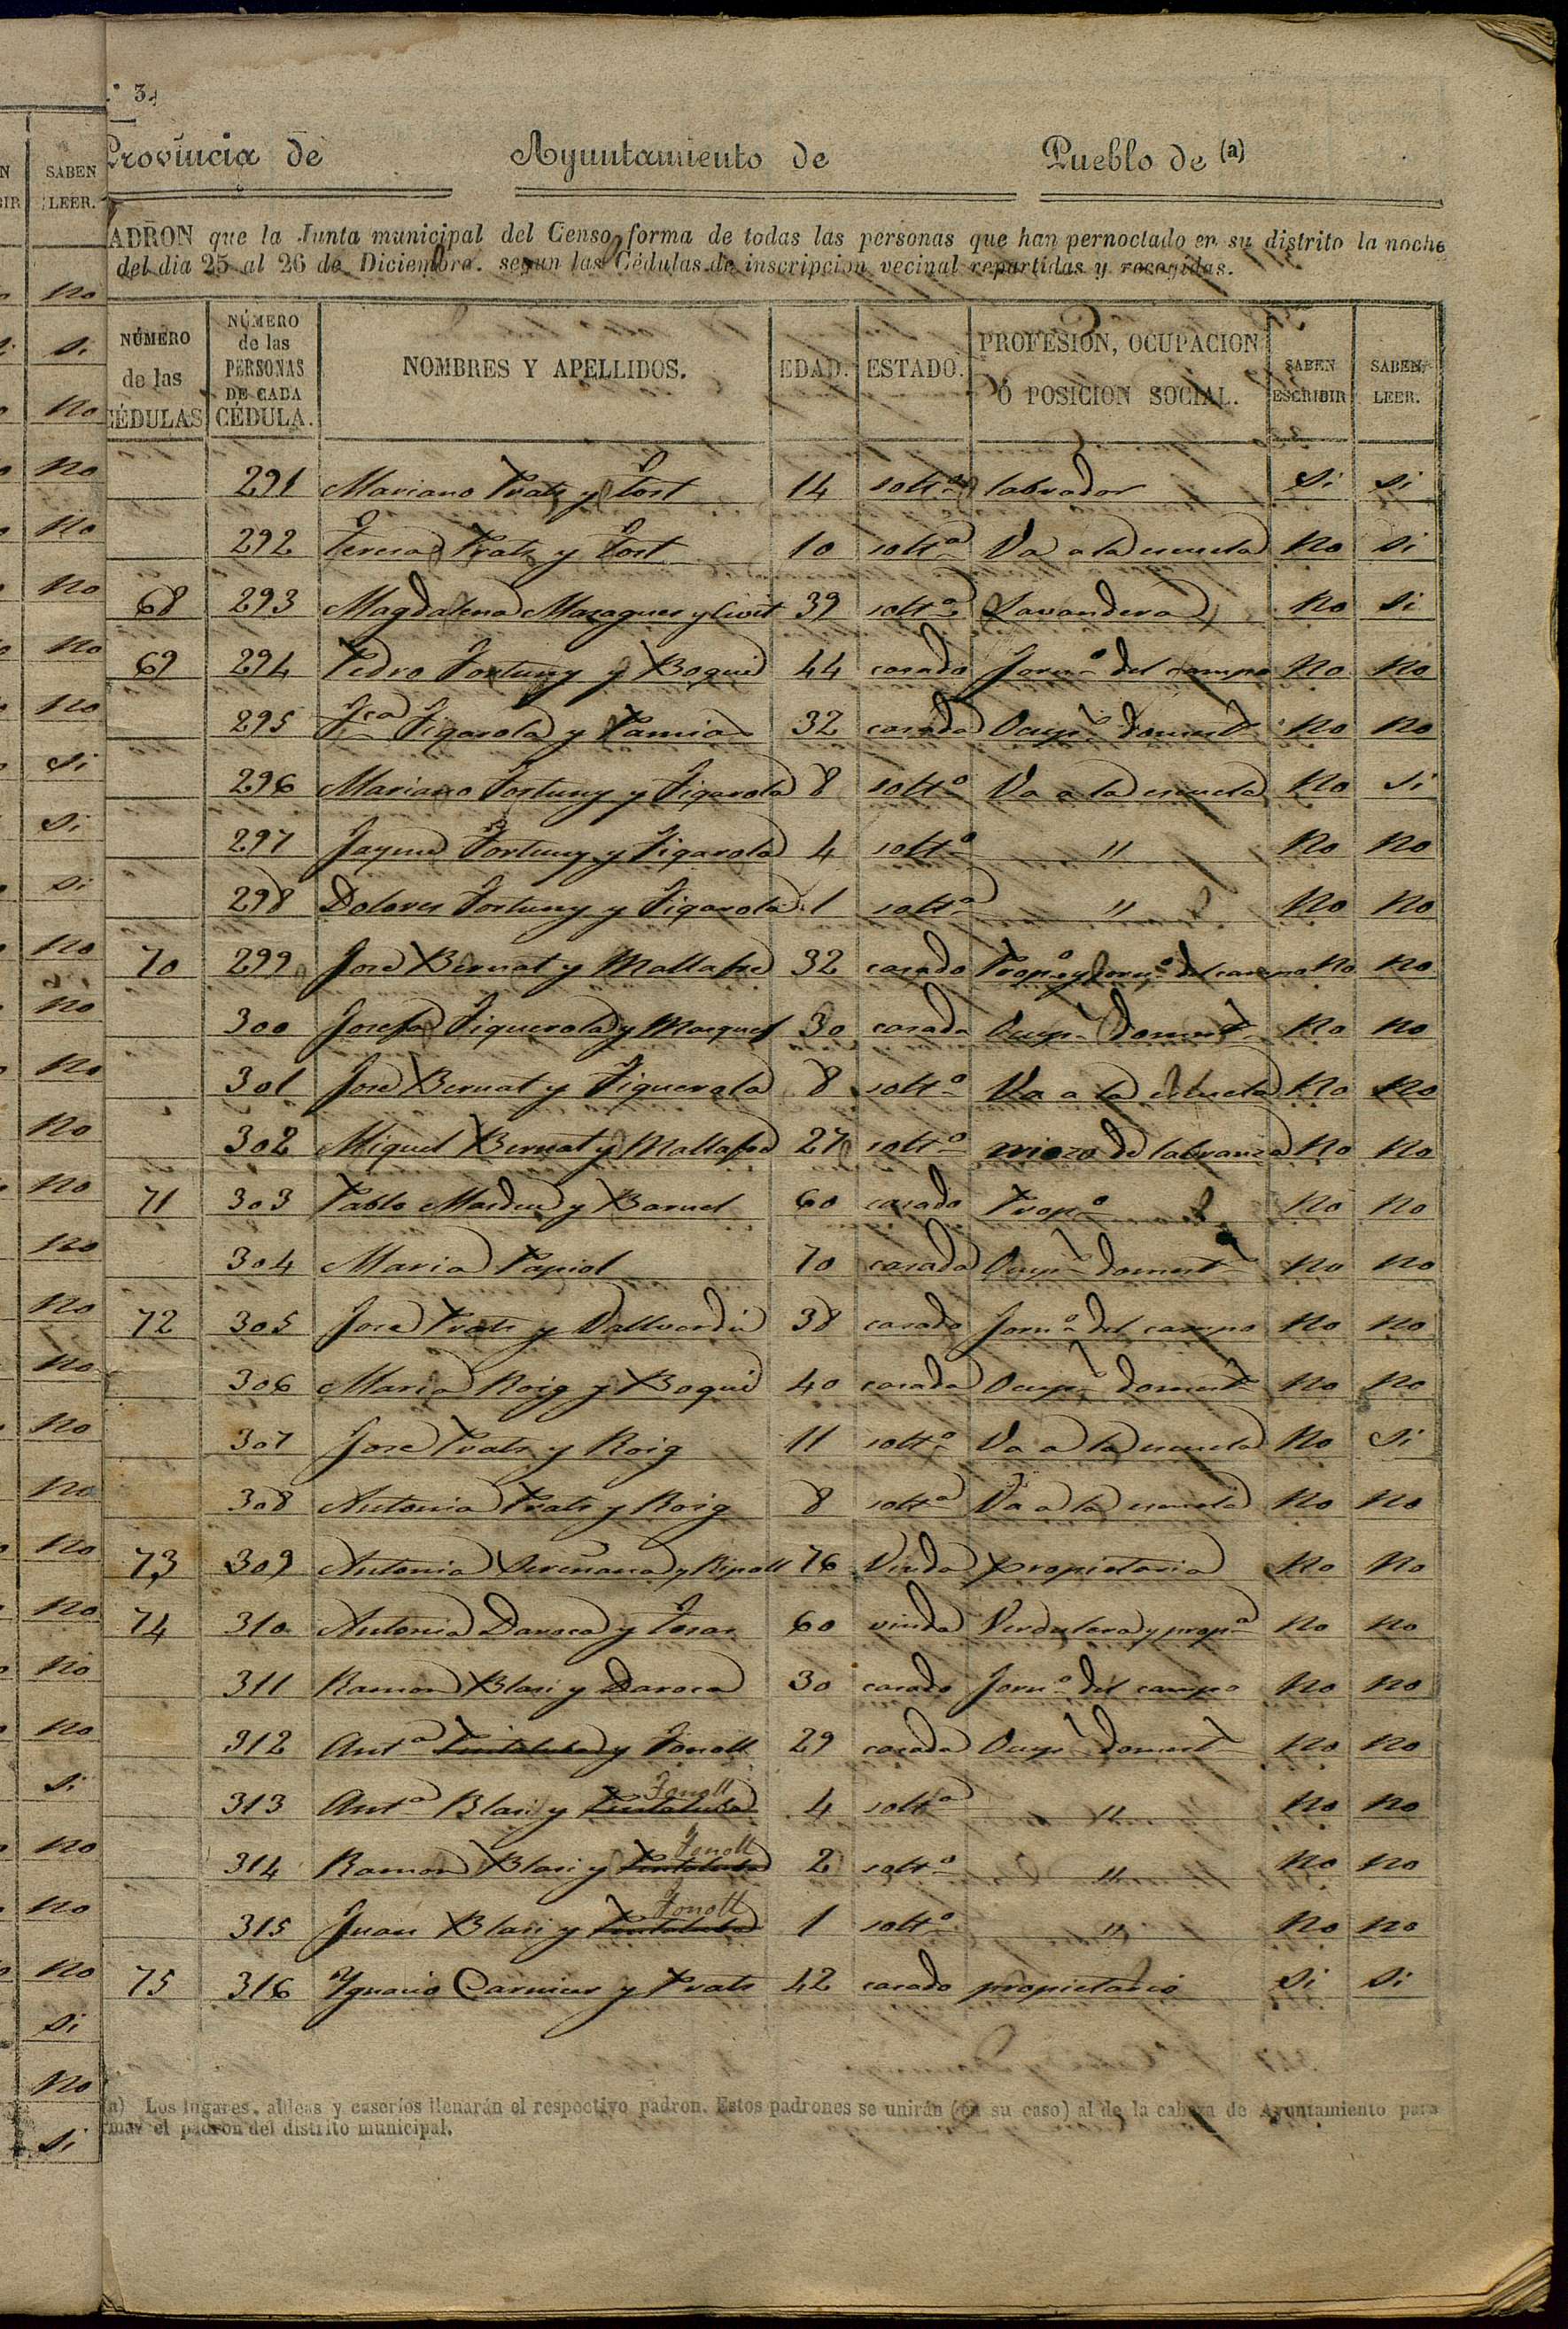 N° 3.
Provincia de Ayuntamiento de Pueblo de (a)
PADRON que la Junta municipal del Censo forma de todas las personas que han pernoctado en su distrito la noche
del dia 25 al 26 de Diciembre. segun las Cédulas de inscripcion vecinal repartidas y recogidas.
NÚMERO de las CÉDULAS NÚMERO de las PERSONAS DE CADA CÉDULA. NOMBRES Y APELLIDOS. EDAD. ESTADO. PROFESION, OCUPACION Ó POSICION SOCIAL. SABEN ESCRIBIR SABEN LEER.
291 Mariano Prats y Fort 14 soltº labrador Si Si
292 Teresa Prats y Fort 10 soltª Va a la escuela No Si
68 293 Magdalena Masaguer y Civit 39 soltª Lavandera No Si
69 294 Pedro Fortuny y Boqué 44 casado Jornº del campo No No
295 Fca Figarola y Tamia 32 casada Ocupª domest No No
296 Mariano Fortuny y Figarola 8 soltº Va a la escuela No Si
297 Jayme Fortuny y Figarola 4 soltº " No No
298 Dolores Fortuny y Figarola 1 soltª " No No
70 299 José Bernat y Mallafré 32 casado Propº y jornº del campo No No
300 Josefa Figuerola y Marques 30 casada Ocupª domest No No
301 José Bernat y Figuerola 8 soltº Va a la escuela No No
302 Miguel Bernat y Mallafré 27 soltº mozo de labranza No No
71 303 Pablo Mardeu y Baruel 60 casado Propº No No
304 Maria Papiol 70 casada Ocupª domest No No
72 305 José Prats y Vallverdú 38 casado Jornº del campo No No
306 Maria Roig y Boqué 40 casada Ocupª domest No No
307 José Prats y Roig 11 soltº Va a la escuela No Si
308 Antonia Prats y Roig 8 soltª Va a la escuela No No
73 309 Antonia Sereñana y Ripoll 76 Viuda propietaria No No
74 310 Antonia Daroca y 60 viuda Verdulera y propª No No
311 Ramon Blasi y Daroca 30 casado Jornº del campo No No
312 Antª y Fonoll 29 casada Ocupª domest No No
313 Antª Blasi y Fonoll 4 soltª " No No
314 Ramon Blasi y Fonoll 2 soltº " No No
315 Juan Blasi y Fonoll 1 soltº " No No
75 316 Ygnacio Carnicer y Prats 42 casado propietario Si Si
(a) Los lugares, aldeas y caseríos llenarán el respectivo padron. Estos padrones se unirán (en su caso) al de la cabeza de Ayuntamiento para
formar el padron del distrito municipal.